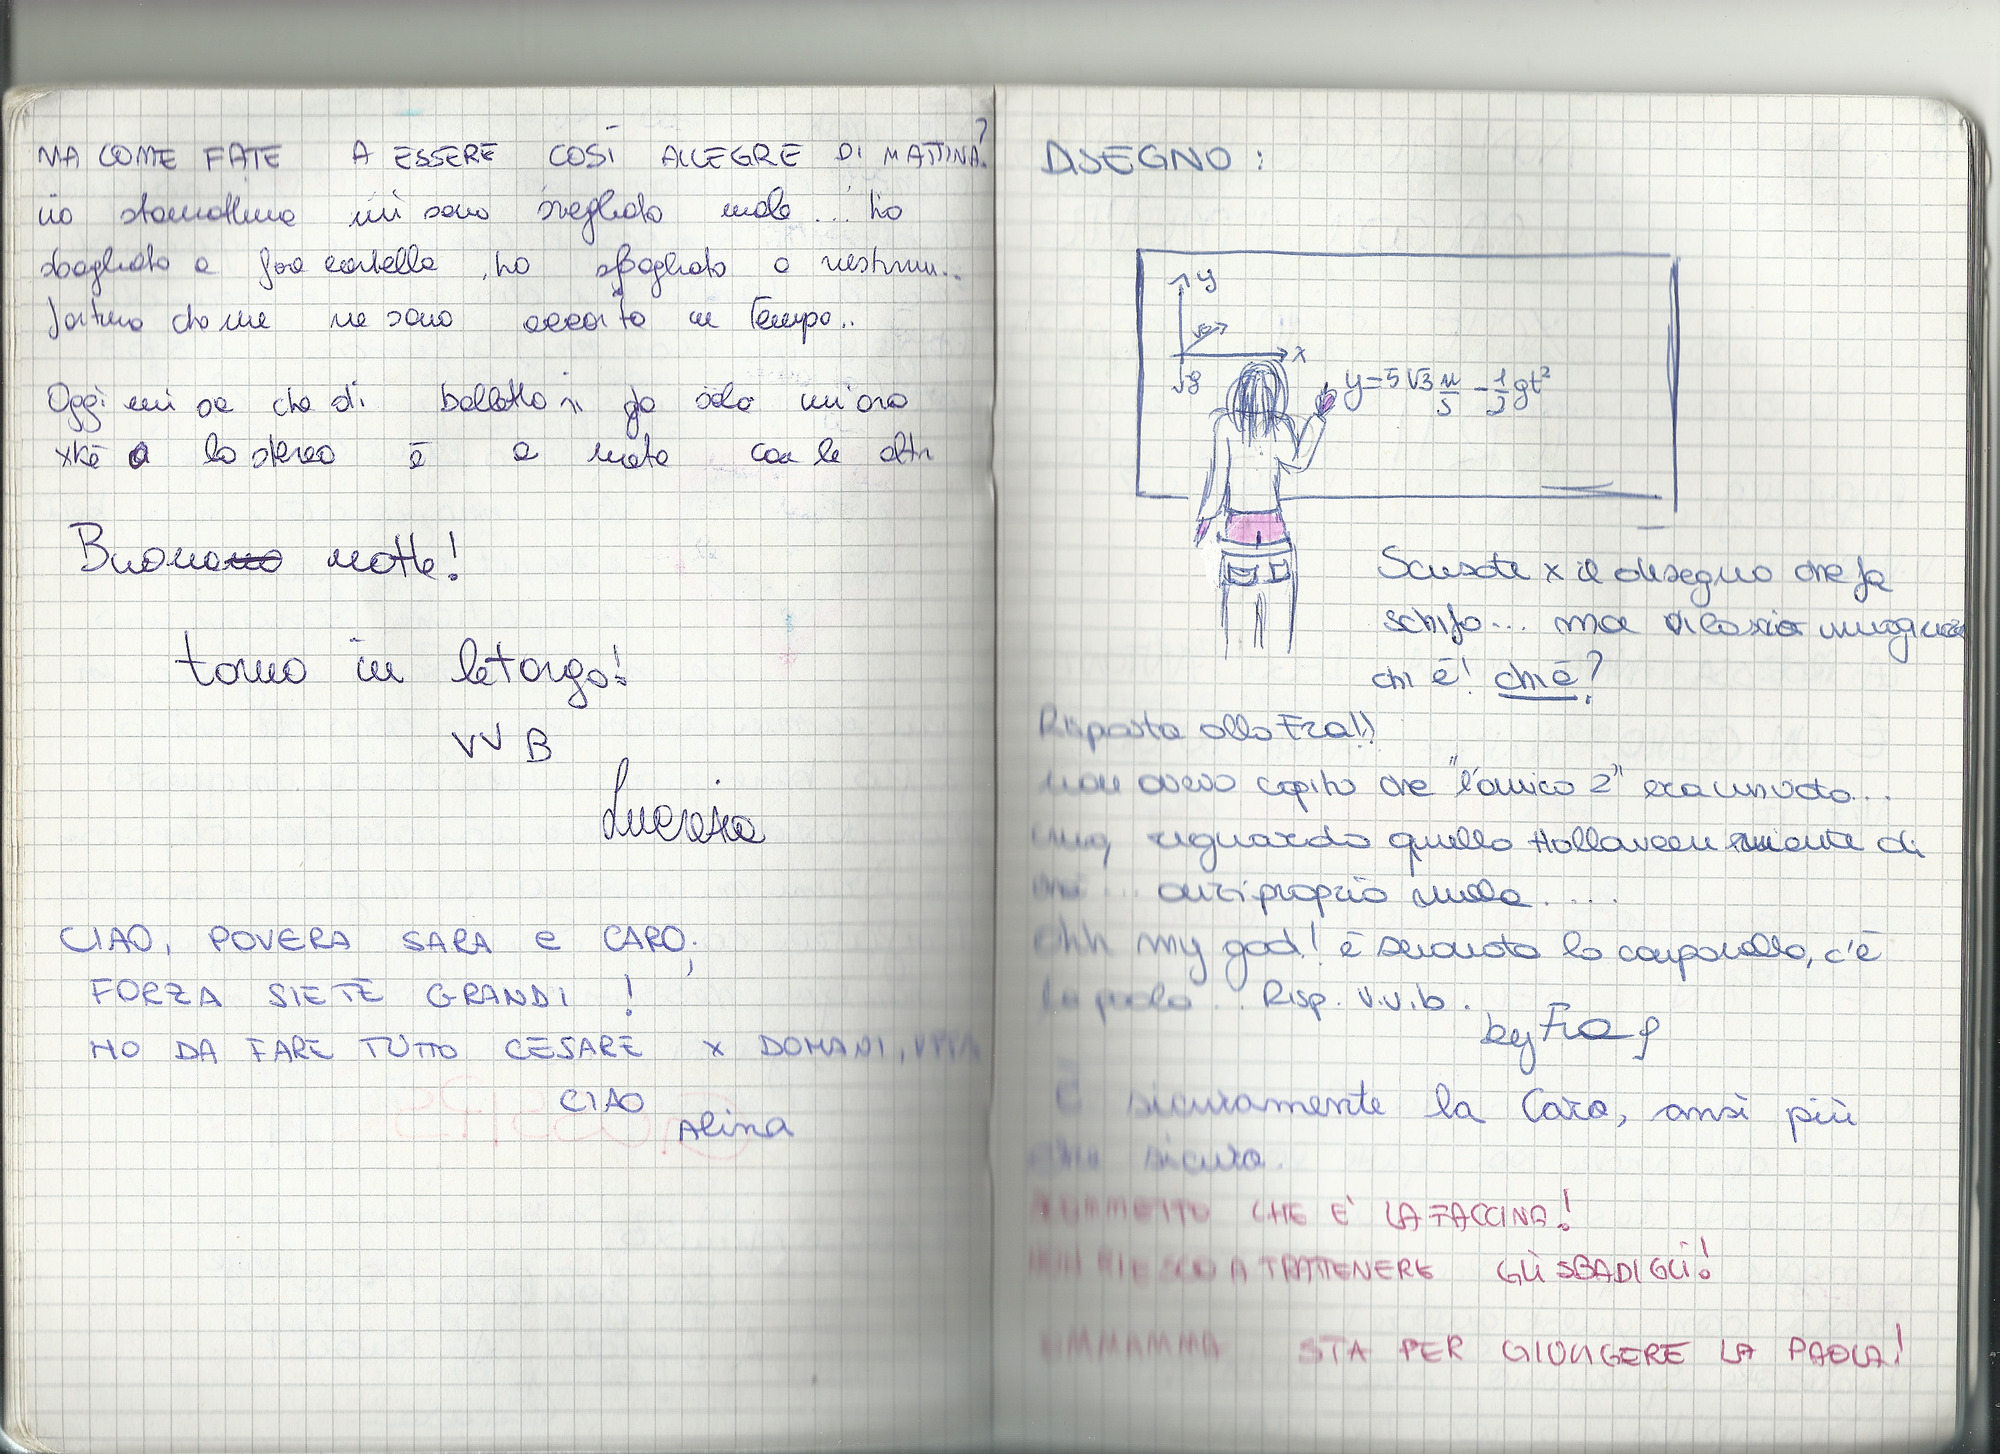 MA COME FATE A ESSERE COSÌ ALLEGRE DI MATTINA?
io stamattina mi sono svegliata male... ho
sbagliato a fare cartella, ho sbagliato a vestirmi..
fortuna che me ne sono accorta in Tempo..
Oggi mi sa che di balletto ne fo solo un'ora
xkè lo stereo è a metà con le altre
Buona notte!
torno in letargo!
VVB
Lucrezia
CIAO, POVERA SARA e CARO,
FORZA SIETE GRANDI !
HO DA FARE TUTTO CESARE x DOMANI,
CIAO
Alina
DISEGNO :
y
x
y=5√3 m/s - 1/2 gt²
Scusate x il disegno che fa
schifo... ma si
chi è! chi è?
Risposta alla Fra!!
non avevo capito che "l'amico 2" era
riguardo quello Hallaween niente di
... anzi proprio nulla....
Ohh my god! è suonata la campanella, c'è
la . Risp. v.v.b.
by Fra
È sicuramente la Caro, anzi più
che sicura.
SCOMMETTO CHE E' LA FACCINA!
NON RIESCO A TRATTENERE GLI SBADIGLI!
STA PER GIUNGERE LA PAOLA!